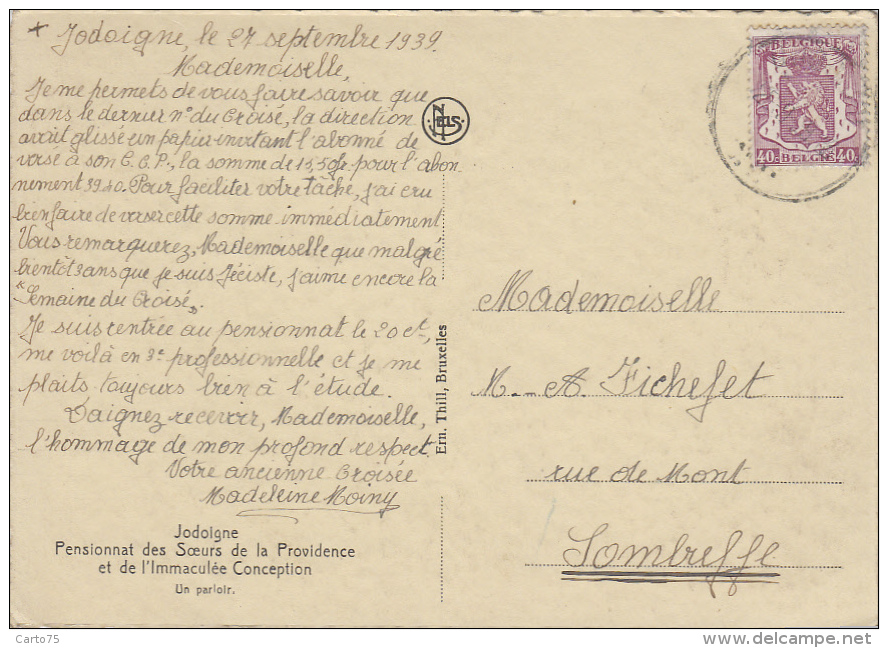 + Jodoigne, le 27 septembre 1939.
Mademoiselle,
Je me permets de vous faire savoir que
dans le dernier n° du Croisé, la direction
avait glissé un papier invitant l'abonné de
versé à son C.C.P., la somme de 15,50fr pour l'abon-
nement 39.40. Pour faciliter votre tâche, j'ai cru
bien faire de verser cette somme immédiatement
Vous remarquerez, Mademoiselle que malgré
bientôt 3 ans que je suis Jéciste, j'aime encore la
"Semaine du Croisé".
Je suis rentrée au pensionnat le 20 ct,
me voilà en 3e professionnelle et je me
plaîts toujours bien à l'étude.
Daignez recevoir, Mademoiselle,
l'hommage de mon profond respect.
Votre ancienne Croisée
Madeleine Noiny
Jodoigne
Pensionnat des Sœurs de la Providence
et de l'Immaculée Conception
Un parloir.
NELS
Ern. Thill, Bruxelles
BELGIQUE
40c BELGIË 40c
Mademoiselle
M.-A. Fichefet
rue de Mont
Sombreffe
Carto75
www.delcampe.net